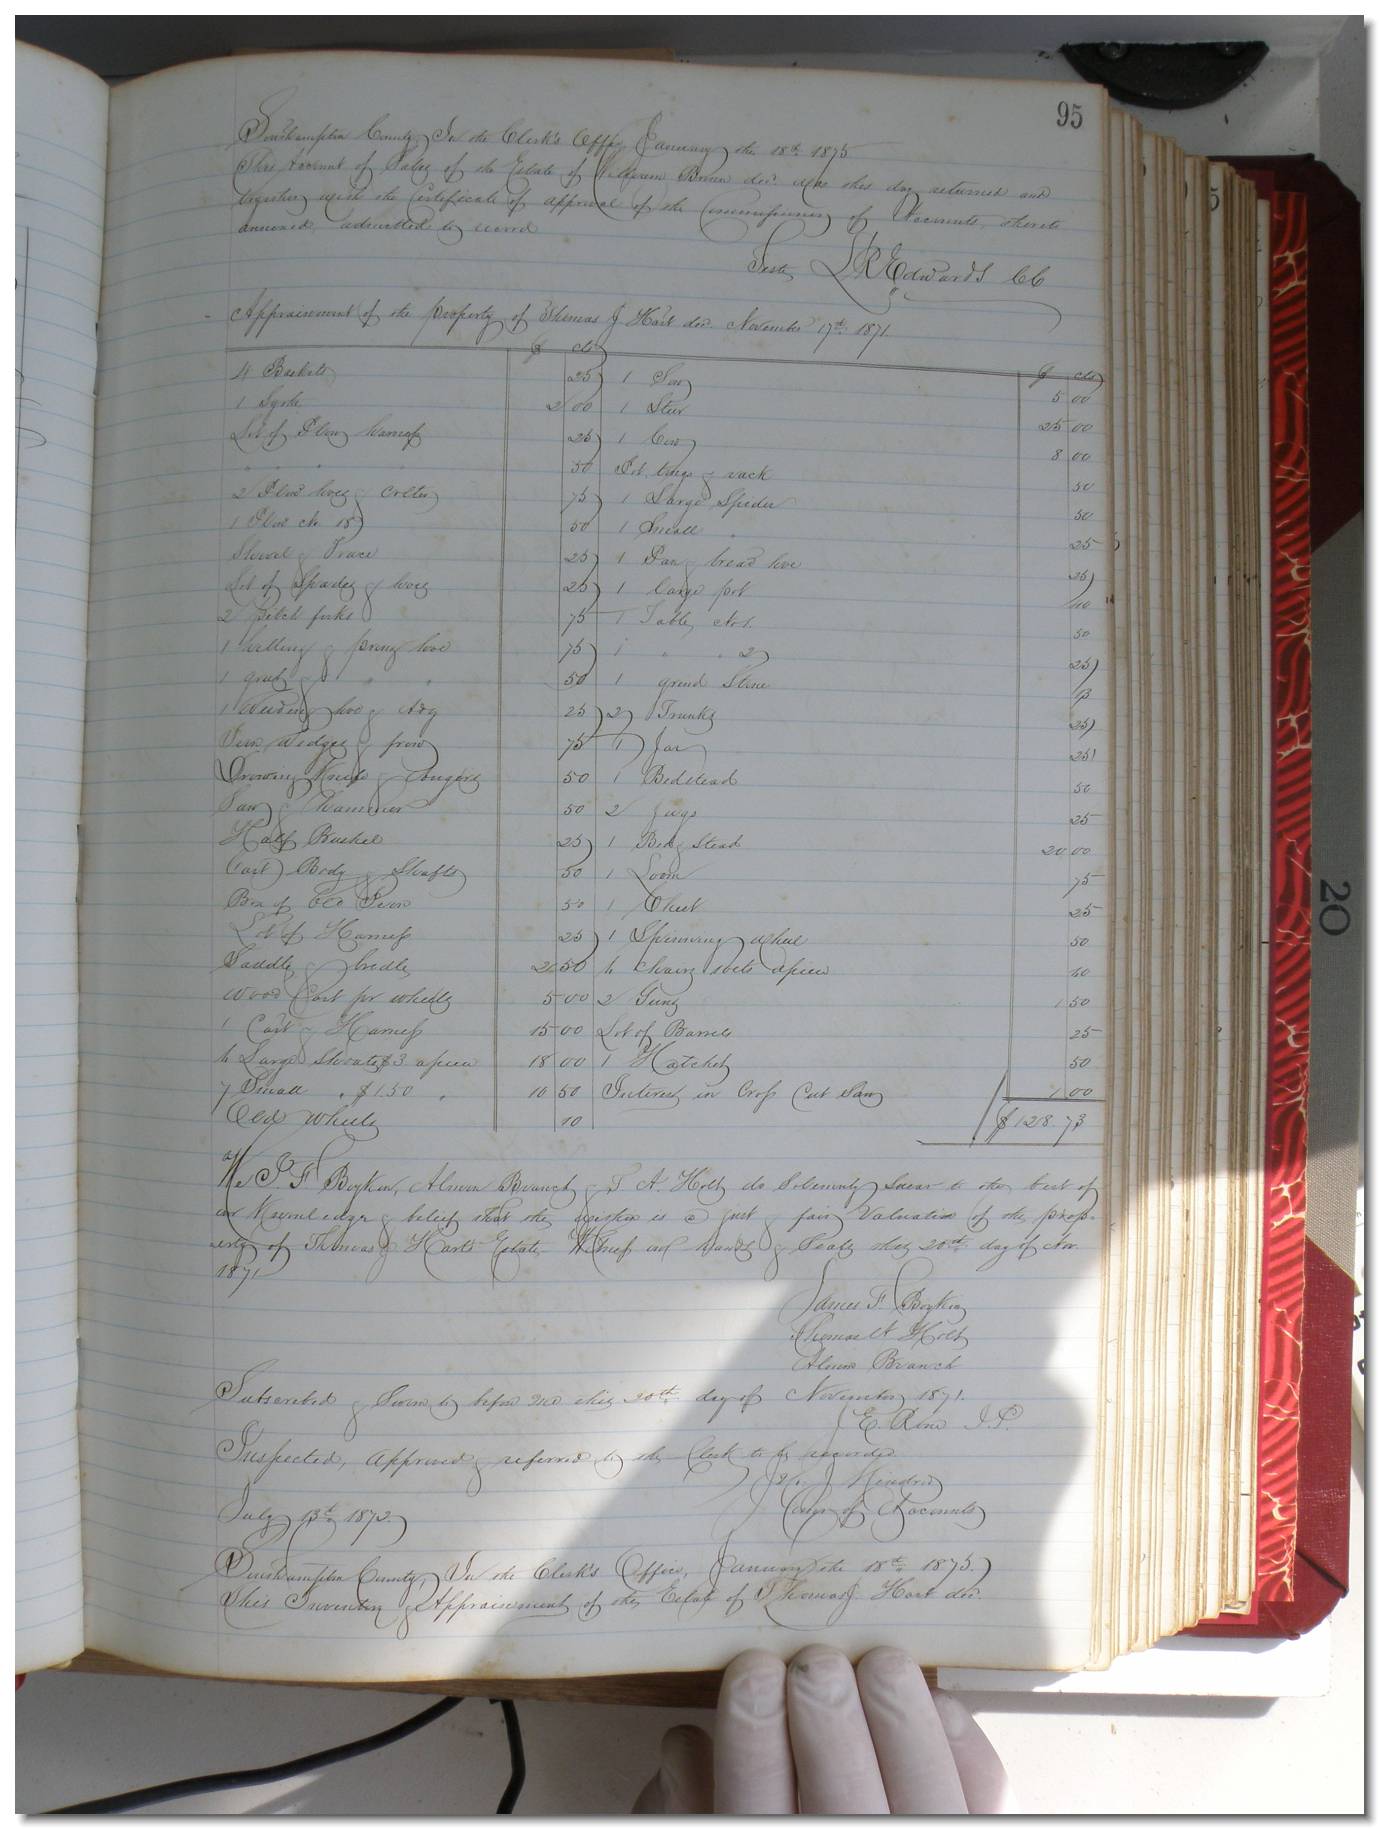 95
Southampton County, In the Clerk's Office January the 18th 1875
This Account of Sales of the Estate of William Brown decd. was this day returned and
together with the Certificate of approval of the Commissioner of Accounts, thereto
annexed admitted to record
Teste, L R Edwards CC
Appraisement of the property of Thomas J Hart decd. November 17th 1871.
$ cts $ cts
4 Baskets 25 1 Sow 5 00
1 Sythe 2 00 1 Steer 25 00
Lot of Plow harness 25 1 Cow 8 00
" " " " 50 Pot tongs & rack 50
2 Plow hoes & Colter 75 1 Large Spider 50
1 Plow 50 1 Small " 25
Shovel & Trace 25 1 Pan & bread hoe 25
Lot of Spades & hoes 25 1 large pot 40
2 pitch forks 75 1 Table No 1. 50
1 hilling & hoe 75 1 " " 2 25
1 grub & " " 50 1 grind Stone 13
1 Weeding hoe & Adz 25 2 Trunks 25
Iron Wedges & frow 75 1 Jar 25
Drowing Knife & 50 1 Bedstead 50
Saw & Hammer 50 2 Jugs 25
Half Bushel 25 1 Bed & Stead 20 00
Cart Body & Shafts 50 1 Loom 75
Box of Old Iron 50 1 Chest 25
Lot of Harness 25 1 Spinning Wheel 50
Saddle & bridle 2 50 6 chairs apiece 60
Wood Cart pr wheels 5 00 2 Guns 1 50
1 Cart & Harness 15 00 Lot of Barrels 25
6 Large Shoats $3 apiece 18 00 1 Hatchet 50
7 Small " $1.50 " 10 50 Interest in Cross Cut Saw 1 00
Old Wheels 10 $128.73
We J. F Boykin, Alwin Branch & T A. Holt do Solemnly Swear to the best of
our Knowledge & belief that the is a just & fair Valuation of the prop-
erty of Thomas J Hart's Estate. Witness our hands & Seals this 20th day of Nov
1871
James F. Boykin
Thomas A Holt
Alwin Branch
Subscribed & Sworn to before me this 20th day of November 1871.
J E. J.P.
Inspected, approved & referred to the Clerk to be recorded
Kindred
July 13th 1872. Comr of Accounts
Southampton County, In the Clerk's Office, January the 18th 1875.
This Inventory & Appraisement of the Estate of Thomas J. Hart decd.
20